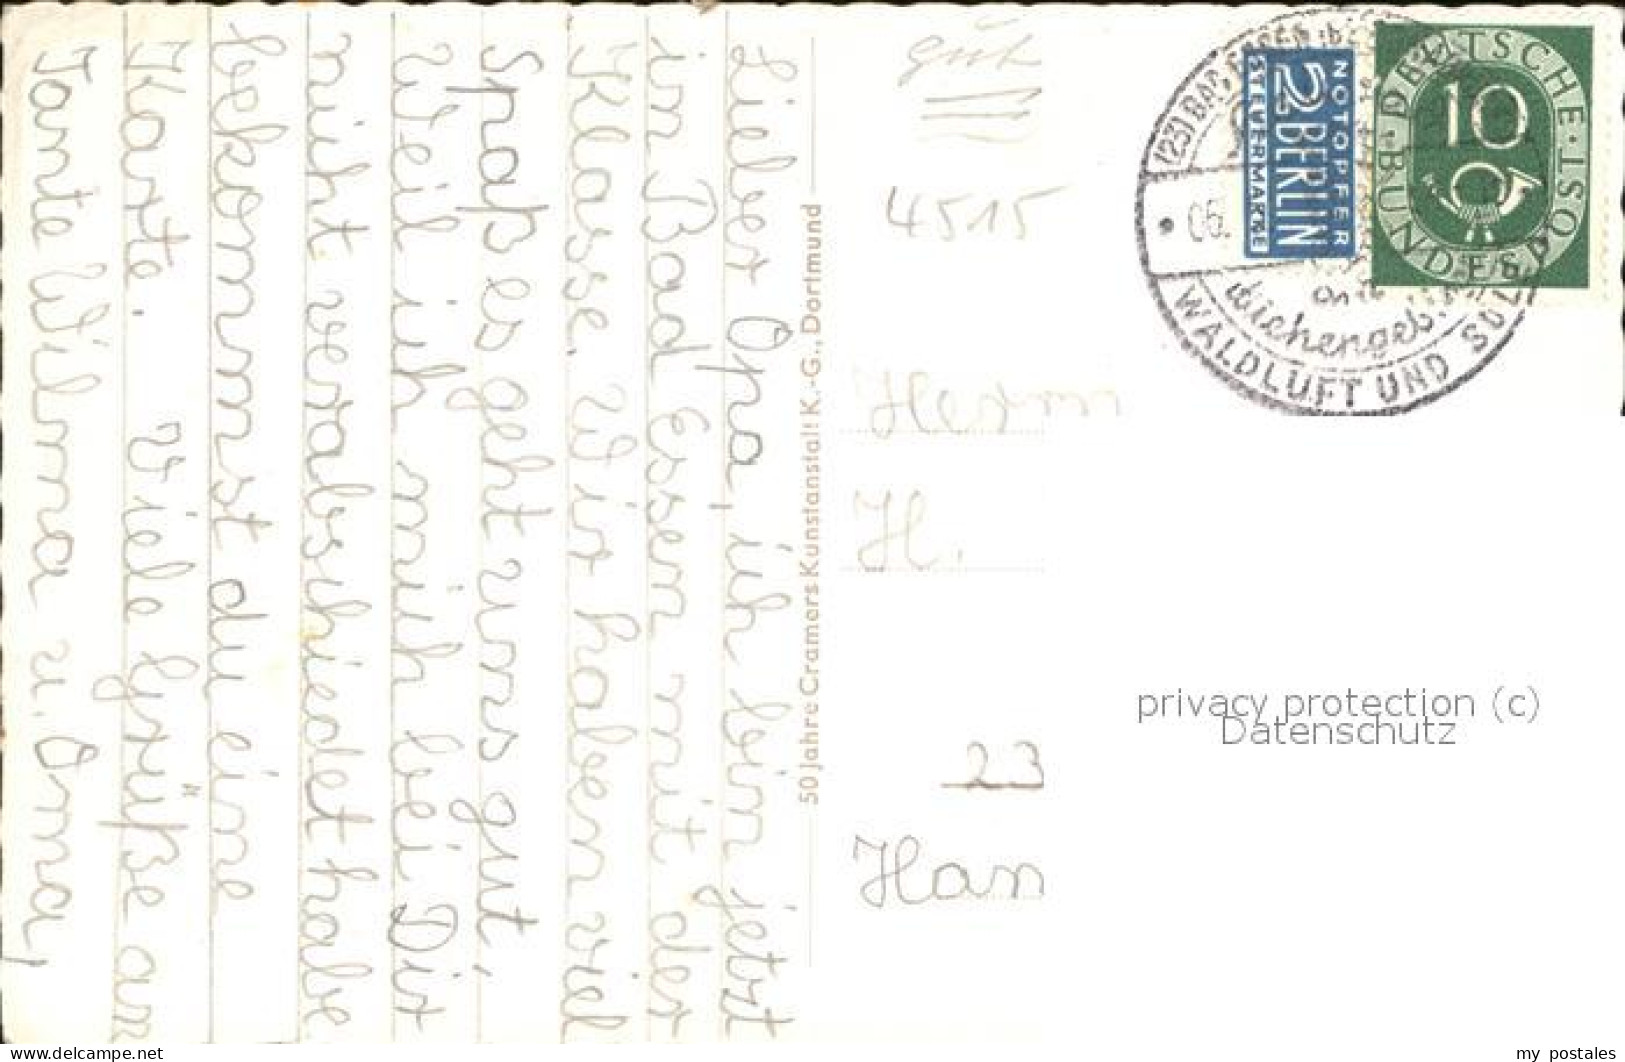 Lieber Opa, ich bin jetzt
in Bad Essen mit der
Klasse. Wir haben viel
Spaß es geht uns gut,
Weil ich mich bei Dir
nicht verabschiedet habe
bekommst du eine
Karte. Viele Grüße an
Tante Wilma u. Oma,
50 Jahre Cramers Kunstanstalt K.-G., Dortmund
gut
4515
Herrn
H.
23
Han
(23) BAD ESSEN
06.
Wiehengeb.
WALDLUFT UND SOL
NOTOPFER
2 BERLIN
STEUERMARKE
DEUTSCHE BUNDESPOST
10
privacy protection (c)
Datenschutz
www.delcampe.net
my_postales